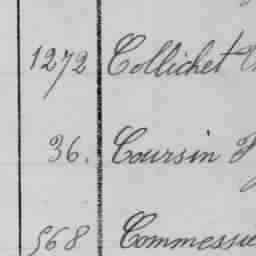 1272 Collichet
36. Coursin
568 Commessie